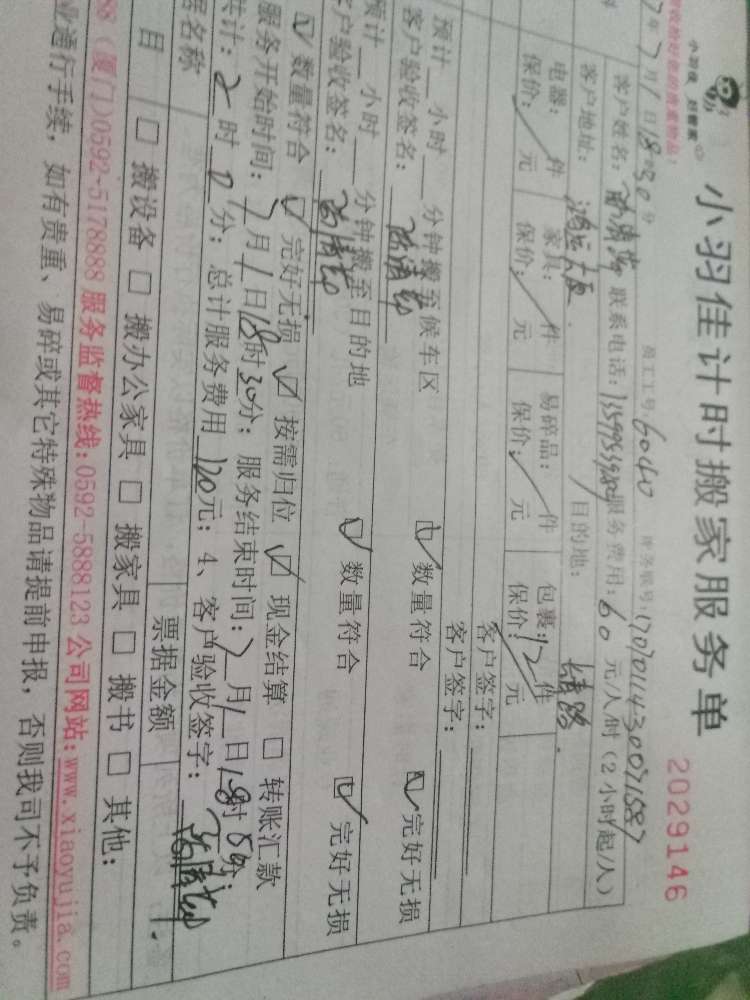 小羽佳 好管家
小羽佳计时搬家服务单
2029146
员工工号:6040
7月1日18时30分
客户姓名:
联系电话:
服务费用:60元/人/时(2小时起/人)
客户地址:鸿运大厦
目的地:
电器:/件 家具:/件 易碎品:/件 包裹:12件
保价:/元 保价:/元 保价:/元 保价:/元
客户签字:
客户签字:
预计__小时__分钟搬至候车区 ☑数量符合 ☑完好无损
客户验收签名:
预计__小时__分钟搬至目的地 ☑数量符合 ☑完好无损
客户验收签名:
☑数量符合 ☑完好无损 ☑按需归位 ☑现金结算 □转账汇款
服务开始时间:7月1日18时30分;服务结束时间:7月1日18时50分;
共计:2时0分;总计服务费用120元;4、客户验收签字:
名称
票据金额
目 □搬设备 □搬办公家具 □搬家具 □搬书 □其他:
88(厦门)0592-5178888 服务监督热线:0592-5888123 公司网站:www.xiaoyujia.com
业通行手续,如有贵重、易碎或其它特殊物品请提前申报,否则我司不予负责。